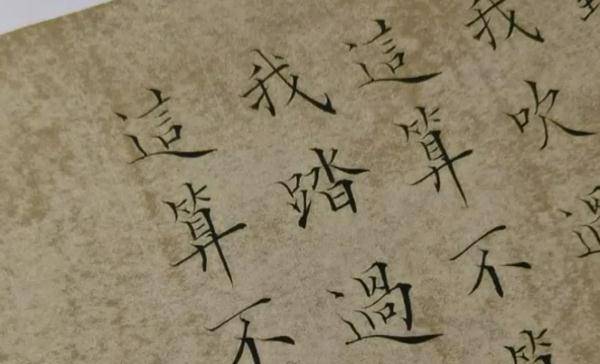 我吹過
這算不
我踏過
這算不